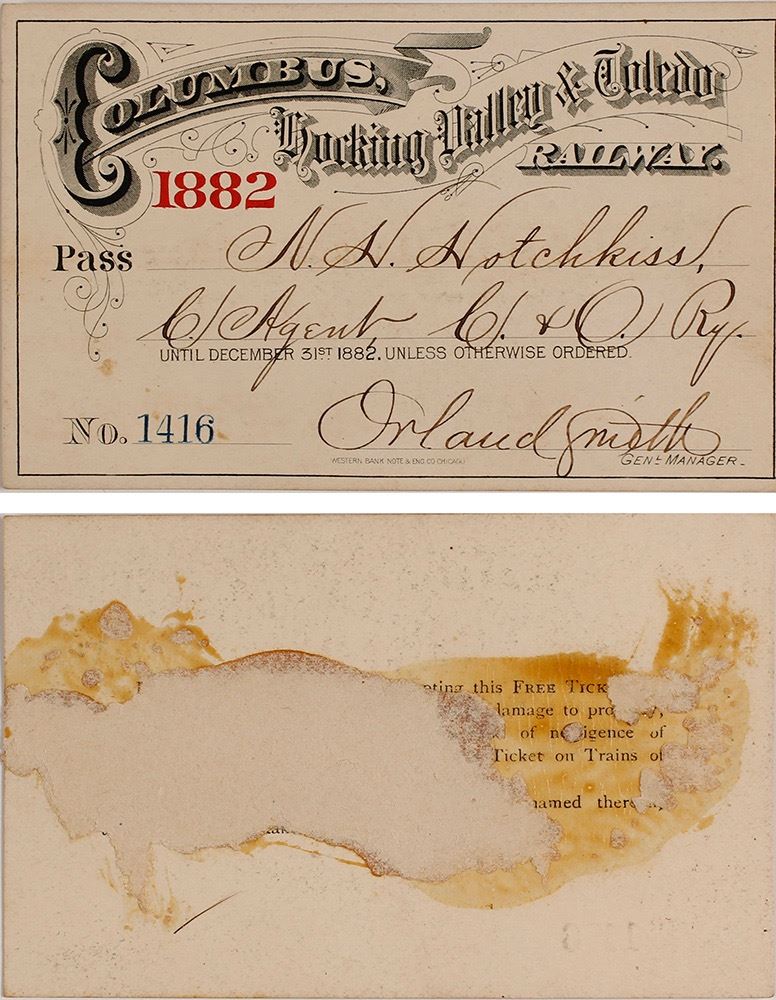 COLUMBUS,
Hocking Valley & Toledo
RAILWAY.
1882
Pass N. H. Hotchkiss,
C/ Agent, C. & O. Ry.
UNTIL DECEMBER 31ST 1882, UNLESS OTHERWISE ORDERED.
No. 1416 Orland Smith
WESTERN BANK NOTE & ENG. CO. CHICAGO
GENL MANAGER.
this FREE
damage to
of
Ticket on Trains of
named